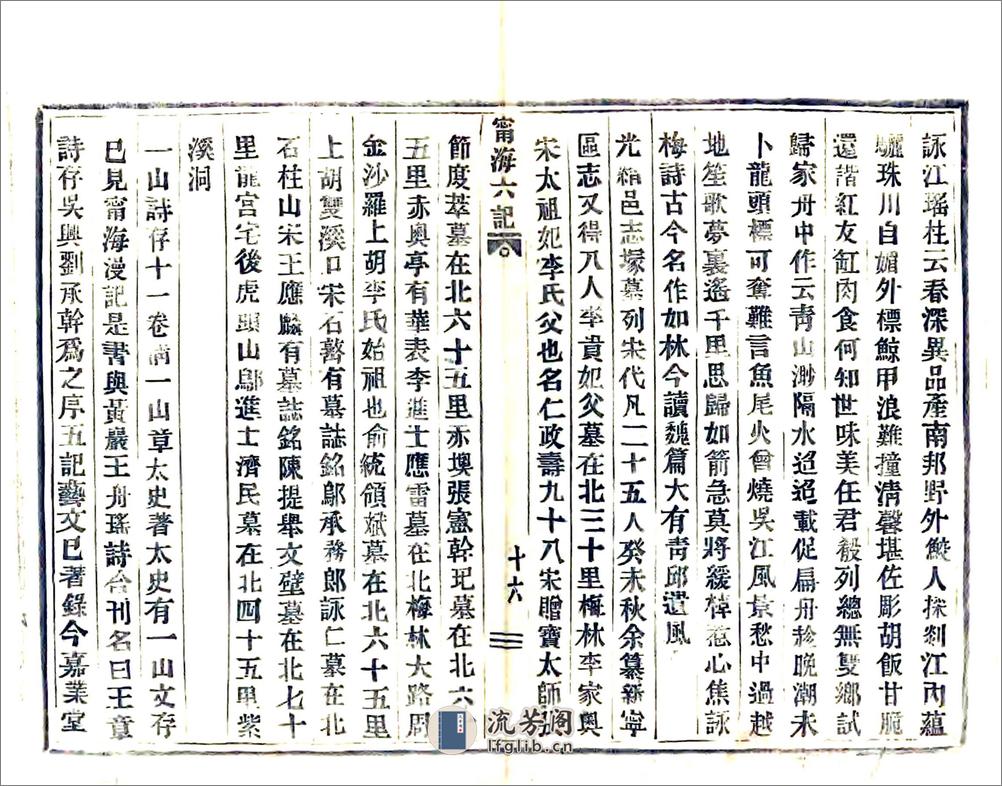 詠江瑤柱云春深異品產南邦野外鮫人採剎江內蘊
驪珠川自媚外標鯨甲浪難撞清馨堪佐彫胡飯甘脆
還諧紅友缸肉食何知世味美任君殽列總無雙鄉試
歸家舟中作云靑山渺隔水迢迢載促扁舟趁晚潮未
卜龍頭標可奪難言魚尾火曾燒吳江風景愁中過越
地笙歌夢裏遙千里思歸如箭急莫將緩棹惹心焦詠
梅詩古今名作如林今讀魏篇大有靑邱遺風
光緒邑志塚墓列宋代凡二十五人癸未秋余纂新寧
區志又得八人李貴妃父墓在北三十里梅林李家輿
宋太祖妃李氏父也名仁政壽九十八宋贈寶太師
甯海六記
十六
節度萃墓在北六十五里亦墺張憲幹玘墓在北六
五里赤奧亭有華表李進士應雷墓在北梅林大路周
金沙羅上胡李氏始祖也俞統領斌墓在北六十五里
上胡雙溪口宋石蕎有墓誌銘鄔承務郎詠仁墓在北
石柱山宋王應麟有墓誌銘陳提舉文璧墓在北七十
里龍宮宅後虎頭山鄔進士濟民墓在北四十五里紫
溪洞
一山詩存十一卷淸一山章太史著太史有一山文存
已見甯海漫記是書與黃巖王舟瑤詩合刊名曰王章
詩存吳興劉承幹爲之序五記藝文已著錄今嘉業堂
流芳閣
lfglib.cn